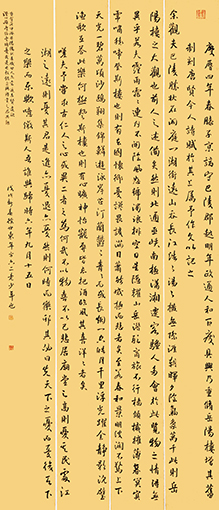 慶曆四年春滕子京謫守巴陵郡越明年政通人和百廢具興乃重修岳陽樓增其舊
制刻唐賢今人詩賦於其上屬予作文以記之
余觀夫巴陵勝狀在洞庭一湖銜遠山吞長江浩浩湯湯橫無際涯朝暉夕陰氣象萬千此則岳
陽樓之大觀也前人之述備矣然則北通巫峽南極瀟湘遷客騷人多會於此覽物之情得無
異乎若夫霪雨霏霏連月不開陰風怒號濁浪排空日星隱耀山岳潛形商旅不行檣傾楫摧薄暮冥冥
虎嘯猿啼登斯樓也則有去國懷鄉憂讒畏譏滿目蕭然感極而悲者矣至若春和景明波瀾不驚上下
天光一碧萬頃沙鷗翔集錦鱗游泳岸芷汀蘭郁郁青青而或長煙一空皓月千里浮光躍金靜影沉璧
漁歌互答此樂何極登斯樓也則有心曠神怡寵辱皆忘把酒臨風其喜洋洋者矣
嗟夫予嘗求古仁人之心或異二者之為何哉不以物喜不以己悲居廟堂之高則憂其民處江
湖之遠則憂其君是進亦憂退亦憂然則何時而樂耶其必曰先天下之憂而憂後天下
之樂而樂歟噫微斯人吾誰與歸時六年九月十五日